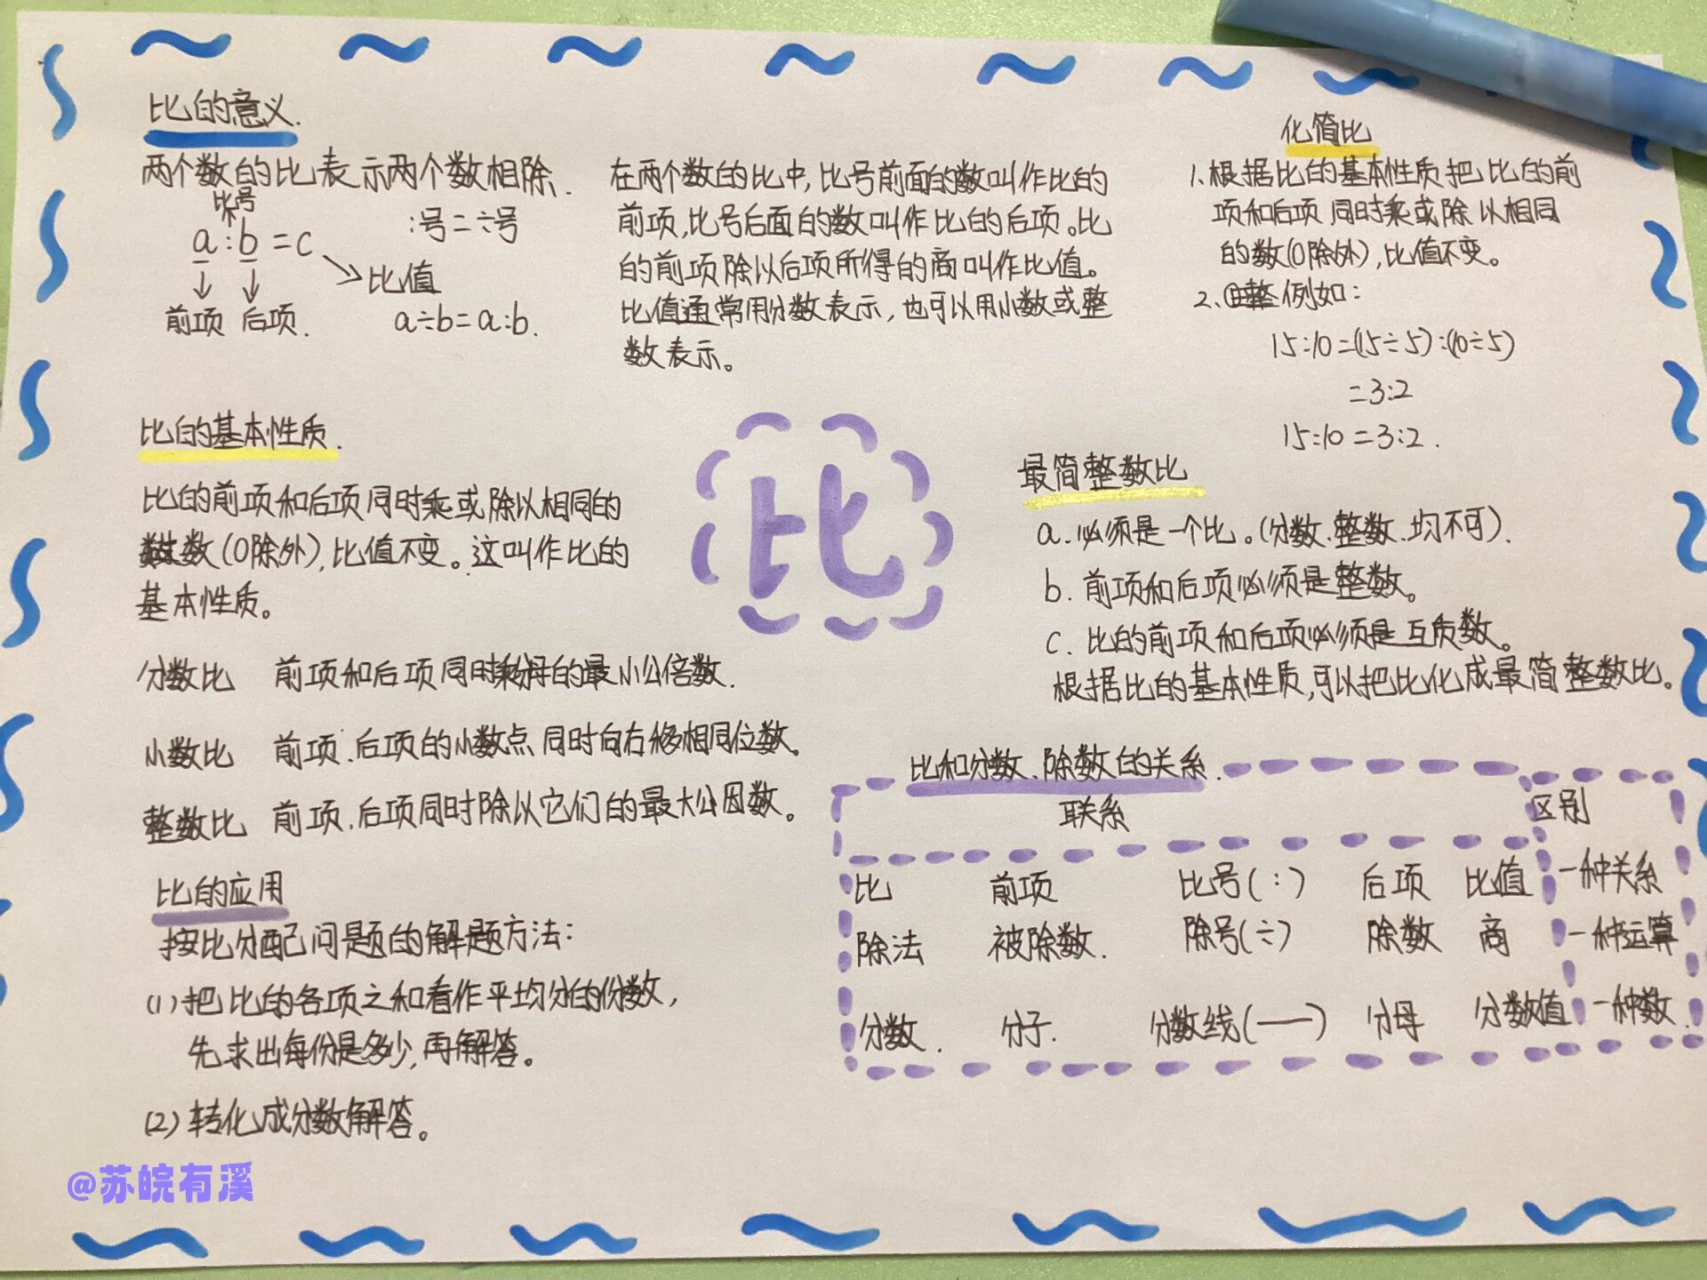 比的意义.
两个数的比表示两个数相除.
比号
:号=÷号
a:b=c
比值
前项 后项.
a÷b=a:b.
在两个数的比中,比号前面的数叫作比的
前项,比号后面的数叫作比的后项。比
的前项除以后项所得的商叫作比值。
比值通常用分数表示,也可以用小数或整
数表示。
化简比
1.根据比的基本性质把比的前
项和后项同时乘或除以相同
的数(0除外),比值不变。
2.例如:
15:10=(15÷5):(10÷5)
=3:2
15:10=3:2.
比的基本性质.
比的前项和后项同时乘或除以相同的
数(0除外),比值不变。这叫作比的
基本性质。
分数比 前项和后项同时乘分母的最小公倍数.
小数比 前项、后项的小数点同时向右移相同位数。
整数比 前项、后项同时除以它们的最大公因数。
比
最简整数比
a.必须是一个比。(分数、整数、均不可).
b.前项和后项必须是整数。
c.比的前项和后项必须是互质数。
根据比的基本性质,可以把比化成最简整数比。
比的应用
按比分配问题的解题方法:
(1)把比的各项之和看作平均分的份数,
先求出每份是多少,再解答。
(2)转化成分数解答。
比和分数、除数的关系.
联系 区别
比 前项 比号(:) 后项 比值 一种关系
除法 被除数. 除号(÷) 除数 商 一种运算
分数. 分子. 分数线(—) 分母 分数值 一种数
@苏皖有溪